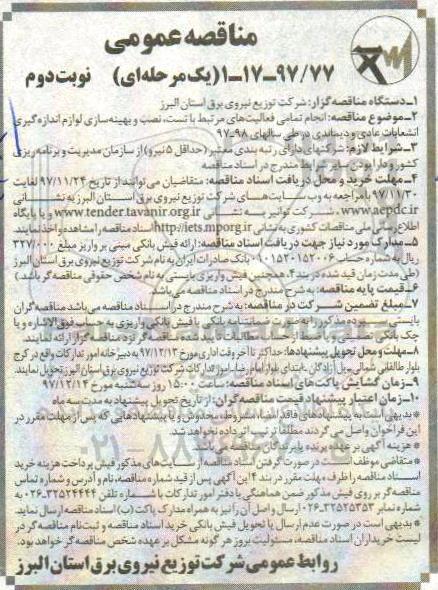 مناقصه عمومی
۹۷/۷۷-۱۷-۱ (یک مرحله‌ای) نوبت دوم
۱-دستگاه مناقصه‌گزار: شرکت توزیع نیروی برق استان البرز
۲-موضوع مناقصه: انجام تمامی فعالیت‌های مرتبط با تست، نصب و بهینه‌سازی لوازم اندازه‌گیری
انشعابات عادی و دیماندی در طی سالهای ۹۸-۹۷
۳-شرایط لازم: شرکتهای دارای رتبه بندی معتبر (حداقل ۵ نیرو) از سازمان مدیریت و برنامه‌ریزی
کشور و دارا بودن سایر شرایط مندرج در اسناد مناقصه
۴-مهلت خرید و محل دریافت اسناد مناقصه: متقاضیان می‌توانند از تاریخ ۹۷/۱۱/۲۴ لغایت
۹۷/۱۱/۳۰ با مراجعه به وب سایت‌های شرکت توزیع نیروی برق استان البرز به نشانی
www.aepdc.ir، شرکت توانیر به نشانی www.tender.tavanir.org.ir و یا پایگاه
اطلاع رسانی ملی مناقصات کشوری به نشانی http//iets.mporg.ir اسناد مناقصه را مشاهده و اخذ نمایند.
۵-مدارک مورد نیاز جهت دریافت اسناد مناقصه: ارائه فیش بانکی مبنی بر واریز مبلغ ۳۲۷/۰۰۰
ریال به شماره حساب ۰۱۰۱۵۲۰۱۵۲۰۰۶ بانک صادرات ایران به نام شرکت توزیع نیروی برق استان البرز
(طی مدت زمان قید شده در بند ۴، همچنین فیش واریزی بایستی به نام شخص حقوقی مناقصه‌گر باشد.)
۶-قیمت پایه مناقصه: به شرح مندرج در اسناد مناقصه می‌باشد.
۷-مبلغ تضمین شرکت در مناقصه: به شرح مندرج در اسناد مناقصه می‌باشد مناقصه‌گران
بایستی سپرده مذکور را به صورت ضمانتنامه بانکی یا فیش بانکی واریزی به حساب فوق‌الاشاره و یا
چک بانکی تضمینی و یا کسر از حساب مطالبات تایید شده مناقصه‌گر نزد مناقصه‌گزار ارائه نمایند.
۸-مهلت و محل تحویل پیشنهادها: حداکثر تا آخر وقت اداری مورخ ۹۷/۱۲/۱۳ به دبیرخانه امور تدارکات واقع در کرج
بلوار طالقانی شمالی، پل آزادگان، ابتدای بلوار امام رضا، امور تدارکات شرکت توزیع نیروی برق استان البرز تحویل نمایند.
۹-زمان گشایش پاکت‌های اسناد مناقصه: ساعت ۱۵:۰۰ روز سه‌شنبه مورخ ۹۷/۱۲/۱۴
۱۰-زمان اعتبار پیشنهاد قیمت مناقصه‌گران: از تاریخ تحویل پیشنهاد به مدت سه ماه
* بدیهی است به پیشنهادهای فاقد امضاء، مشروط، مخدوش و یا پیشنهادهایی که پس از مهلت مقرر در
این فراخوان واصل می‌گردند مطلقا ترتیب اثر داده نخواهد شد.
* هزینه آگهی بر عهده برنده یا برندگان مناقصه می‌باشد.
* متقاضی موظف است در صورت گرفتن اسناد مناقصه از سایت‌های مذکور فیش پرداخت هزینه خرید
اسناد مناقصه را ظرف مهلت مقرر در بند ۴ این آگهی پس از قید شماره مناقصه، نام و آدرس و شماره تماس
مناقصه‌گر بر روی فیش مذکور ضمن هماهنگی با دفتر امور تدارکات با شماره تلفن ۰۲۶-۳۲۵۲۴۴۴۴
به شماره نمابر ۰۲۶-۳۲۵۲۵۳۵۳ ارسال و اصل آن را نیز به همراه مدارک پاکت (ب) اسناد مناقصه ارسال نماید.
* بدیهی است در صورت عدم ارسال یا تحویل فیش بانکی خرید اسناد مناقصه و ثبت نام مناقصه‌گر در
لیست خریداران اسناد مناقصه، مسئولیت بروز هر گونه مشکل بر عهده شخص مناقصه‌گر خواهد بود.
روابط عمومی شرکت توزیع نیروی برق استان البرز